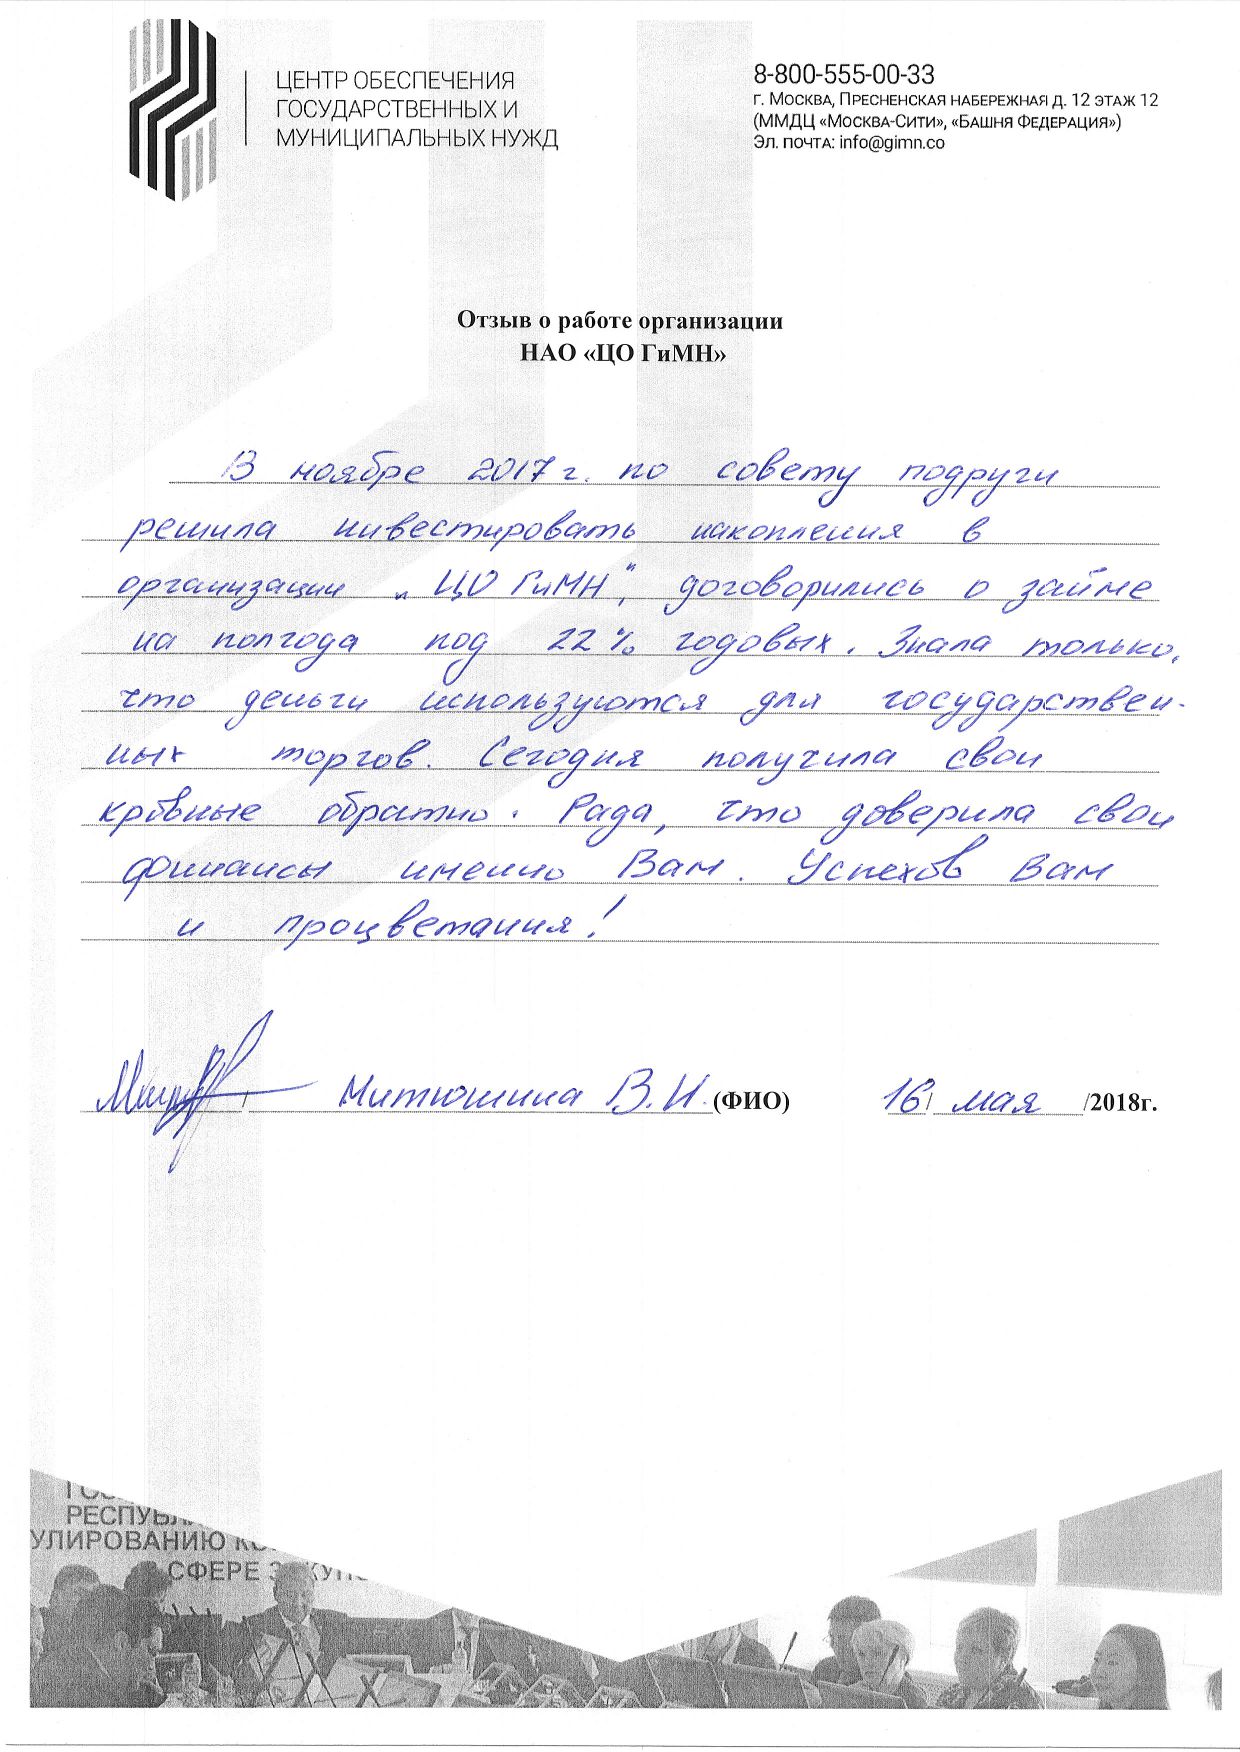 ЦЕНТР ОБЕСПЕЧЕНИЯ
ГОСУДАРСТВЕННЫХ И
МУНИЦИПАЛЬНЫХ НУЖД
8-800-555-00-33
г. Москва, Пресненская набережная д. 12 этаж 12
(ММДЦ «Москва-Сити», «Башня Федерация»)
Эл. почта: info@gimn.co
Отзыв о работе организации
НАО «ЦО ГиМН»
В ноябре 2017 г. по совету подруги
решила инвестировать накопления в
организации „ЦО ГиМН“, договорились о займе
на полгода под 22% годовых. Знала только,
что деньги используются для государствен-
ных торгов. Сегодня получила свои
кровные обратно. Рада, что доверила свои
финансы именно Вам. Успехов Вам
и процветания!
Митюшина В.И. (ФИО) 16/ мая /2018г.
РЕСПУБЛ
УЛИРОВАНИЮ КО
СФЕРЕ ЗАКУПО